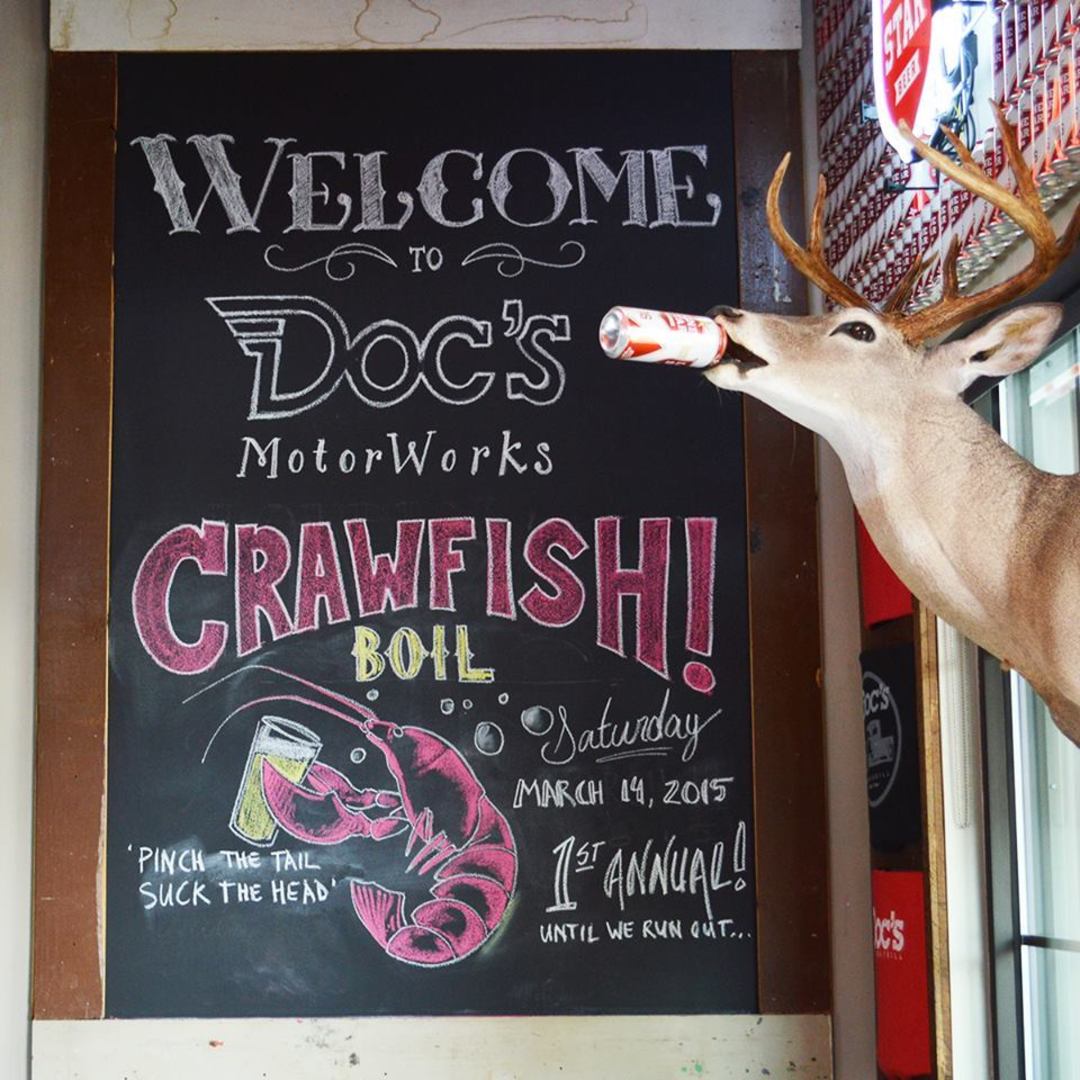 WELCOME
TO
DOC'S
MotorWorks
CRAWFISH!
BOIL
Saturday
MARCH 14, 2015
1ST ANNUAL!
UNTIL WE RUN OUT...
'PINCH THE TAIL
SUCK THE HEAD'
STAR
BEER
OC'S
oc's